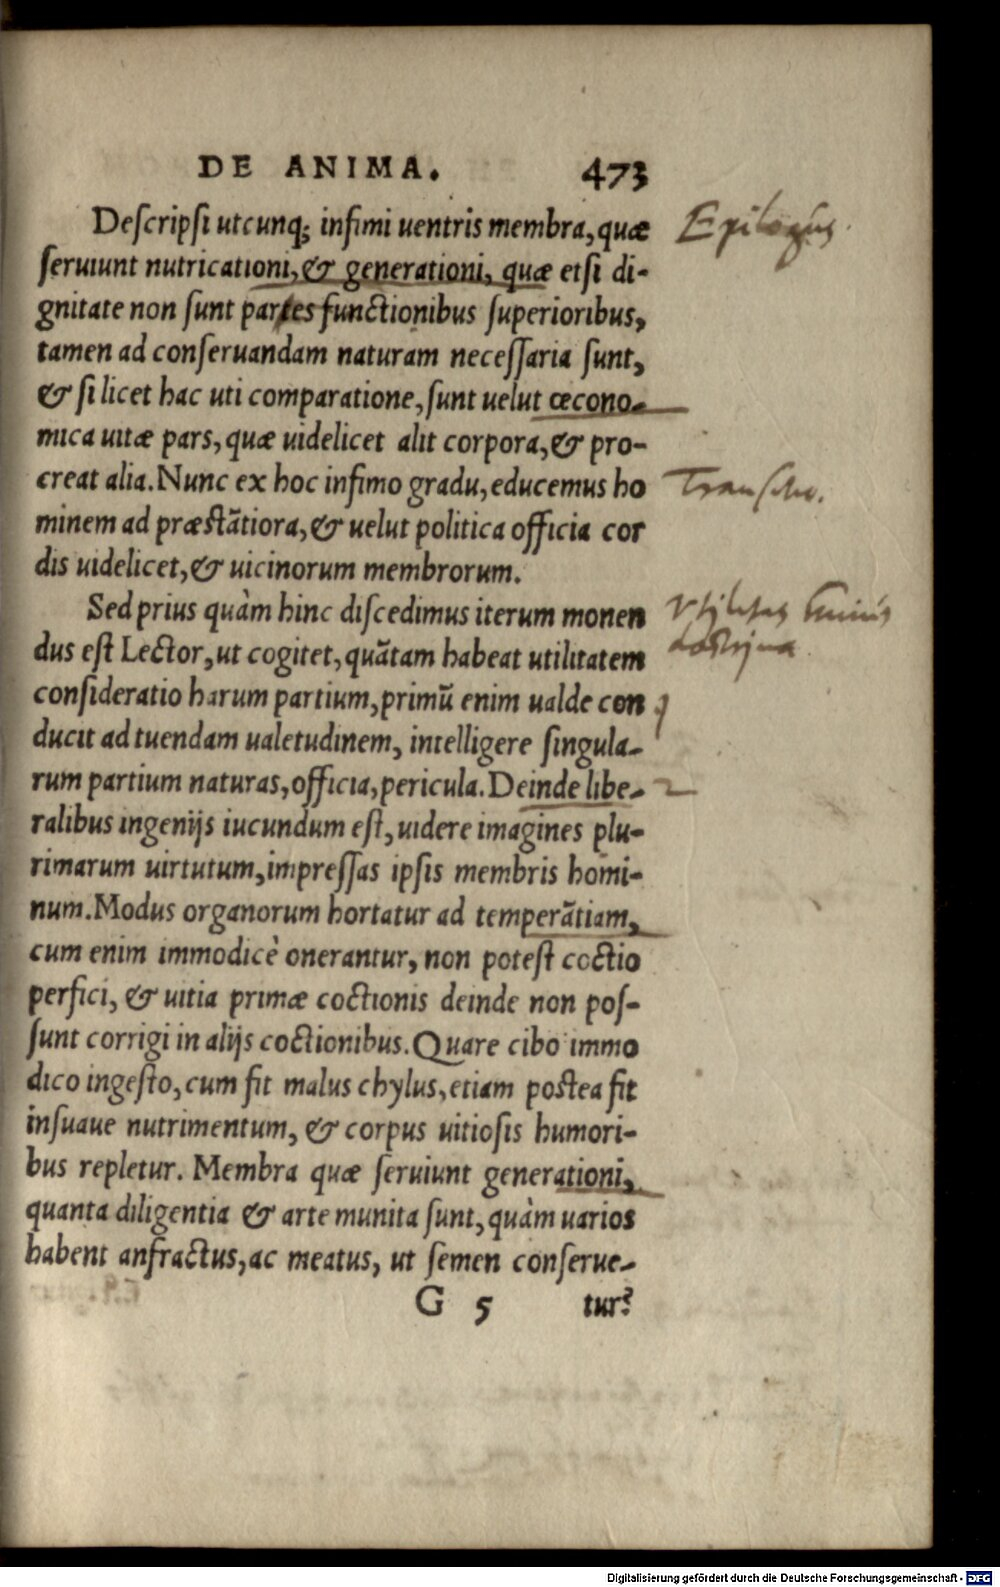 DE ANIMA. 473
Deſcripſi utcunq; infimi uentris membra, quæ
ſeruiunt nutricationi, & generationi, quæ etſi di-
gnitate non ſunt partes functionibus ſuperioribus,
tamen ad conſeruandam naturam neceſſaria ſunt,
& ſi licet hac uti comparatione, ſunt uelut œcono-
mica uitæ pars, quæ uidelicet alit corpora, & pro-
creat alia. Nunc ex hoc infimo gradu, educemus ho
minem ad præſtātiora, & uelut politica officia cor
dis uidelicet, & uicinorum membrorum.
Sed prius quàm hinc diſcedimus iterum monen
dus eſt Lector, ut cogitet, quātam habeat utilitatem
conſideratio harum partium, primū enim ualde con
ducit ad tuendam ualetudinem, intelligere ſingula-
rum partium naturas, officia, pericula. Deinde libe-
ralibus ingenijs iucundum eſt, uidere imagines plu-
rimarum uirtutum, impreſſas ipſis membris homi-
num. Modus organorum hortatur ad temperātiam,
cum enim immodicè onerantur, non poteſt coctio
perfici, & uitia primæ coctionis deinde non poſ-
ſunt corrigi in alijs coctionibus. Quare cibo immo
dico ingeſto, cum fit malus chylus, etiam poſtea fit
inſuaue nutrimentum, & corpus uitioſis humori-
bus repletur. Membra quæ ſeruiunt generationi,
quanta diligentia & arte munita ſunt, quàm uarios
habent anfractus, ac meatus, ut ſemen conſerue-
G 5 tur?
Epilogus
Transitio.
Vtilitas huius
doctrinæ
1
2
Digitalisierung gefördert durch die Deutsche Forschungsgemeinschaft - DFG